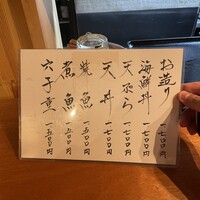 お造り 一七〇〇円
海鮮丼 一七〇〇円
天ぷら 一七〇〇円
天丼 一七〇〇円
焼魚 一五〇〇円
煮魚 一五〇〇円
穴子重 一五〇〇円